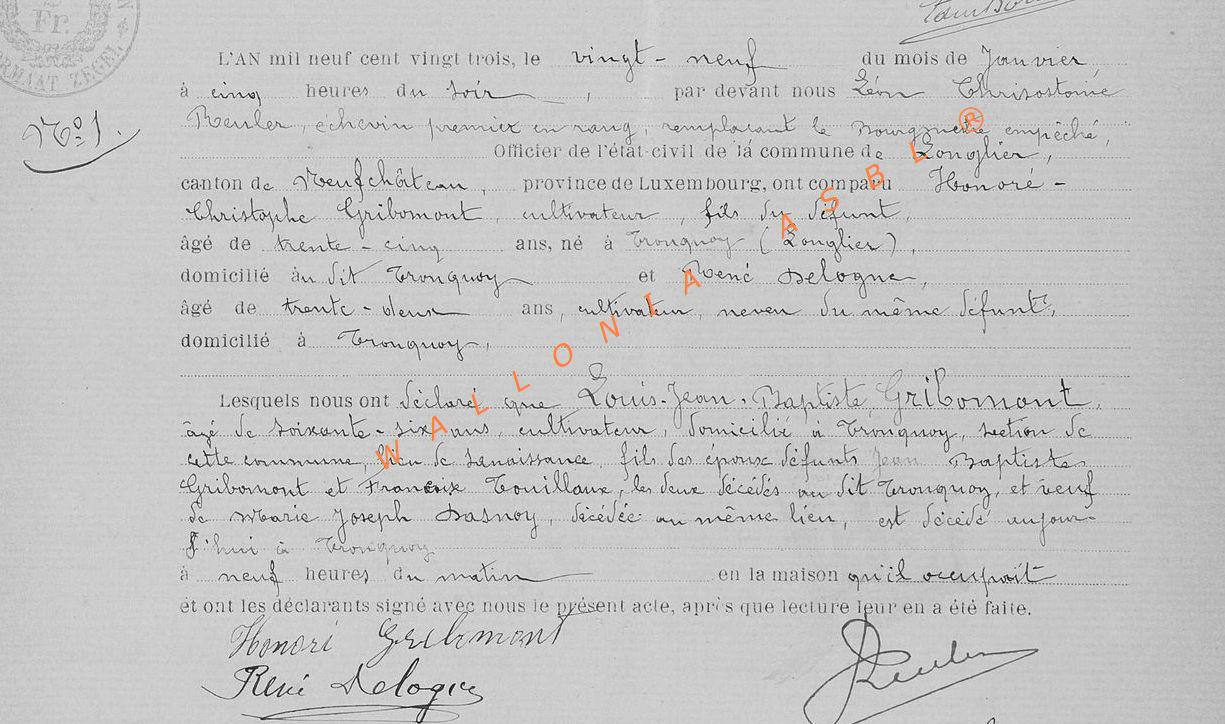 Fr.
FORMAAT ZEGEL
L'AN mil neuf cent vingt trois, le vingt-neuf du mois de Janvier,
à cinq heures du soir, par devant nous Léon Chrisostome
No 1.
Reuler, échevin premier en rang, remplaçant le Bourgmestre empêché,
Officier de l'état-civil de la commune de Longlier,
canton de Neufchâteau, province de Luxembourg, ont comparu Honoré-
Christophe Gribomont, cultivateur, fils du défunt,
âgé de trente-cinq ans, né à Tronquoy (Longlier),
domicilié au dit Tronquoy et René Delogne,
âgé de trente-deux ans, cultivateur, neveu du même défunt,
domicilié à Tronquoy,
Lesquels nous ont déclaré que Louis-Jean-Baptiste Gribomont,
âgé de soixante-six ans, cultivateur, domicilié à Tronquoy, section de
cette commune, lieu de sa naissance, fils des époux défunts Jean Baptiste
Gribomont et Françoise Touillaux, les deux décédés au dit Tronquoy, et veuf
de Marie Joseph Dasnoy, décédée au même lieu, est décédé aujour-
d'hui à Tronquoy
à neuf heures du matin en la maison qu'il occupait
et ont les déclarants signé avec nous le présent acte, après que lecture leur en a été faite.
Honoré Gribomont
René Delogne
Reuler
WALLONIA ASBL ®